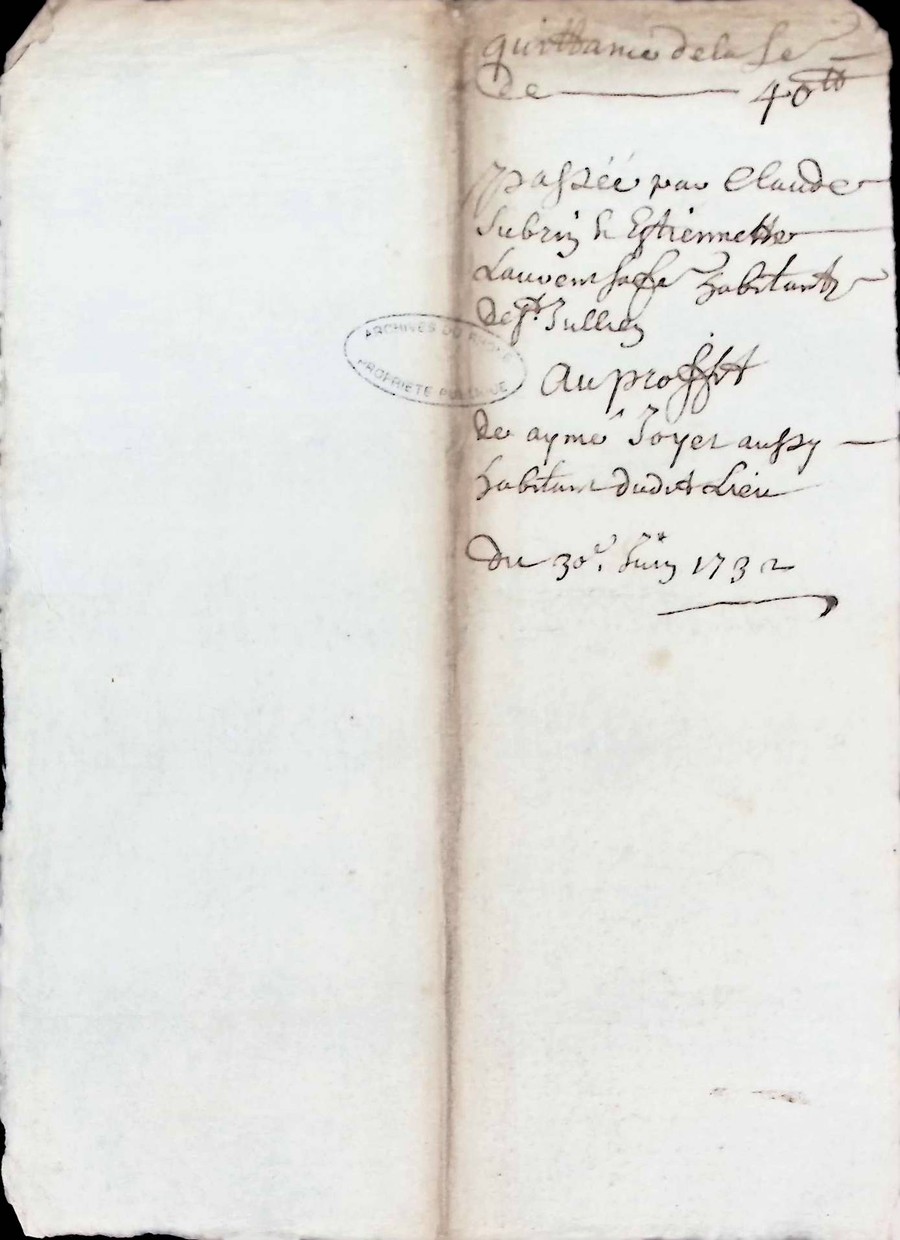 quittance de la se
de 40tt
passée par Claude
Subrin & Estiennette
Laurent sa fe habitants
de st Jullien
ARCHIVES DU RHONE
PROPRIETE PUBLIQUE
au proffit
de aymé Joyet aussy
habitant dudit Lieu
du 30e. Juin 1732